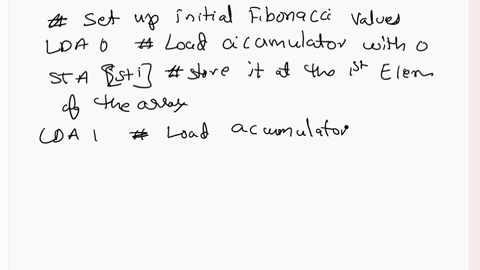 # Set up initial Fibonacci values
LDA 0 # Load accumulator with 0
STA [1st i] # store it at the 1st Elem
of the array
LDA 1 # Load accumulator